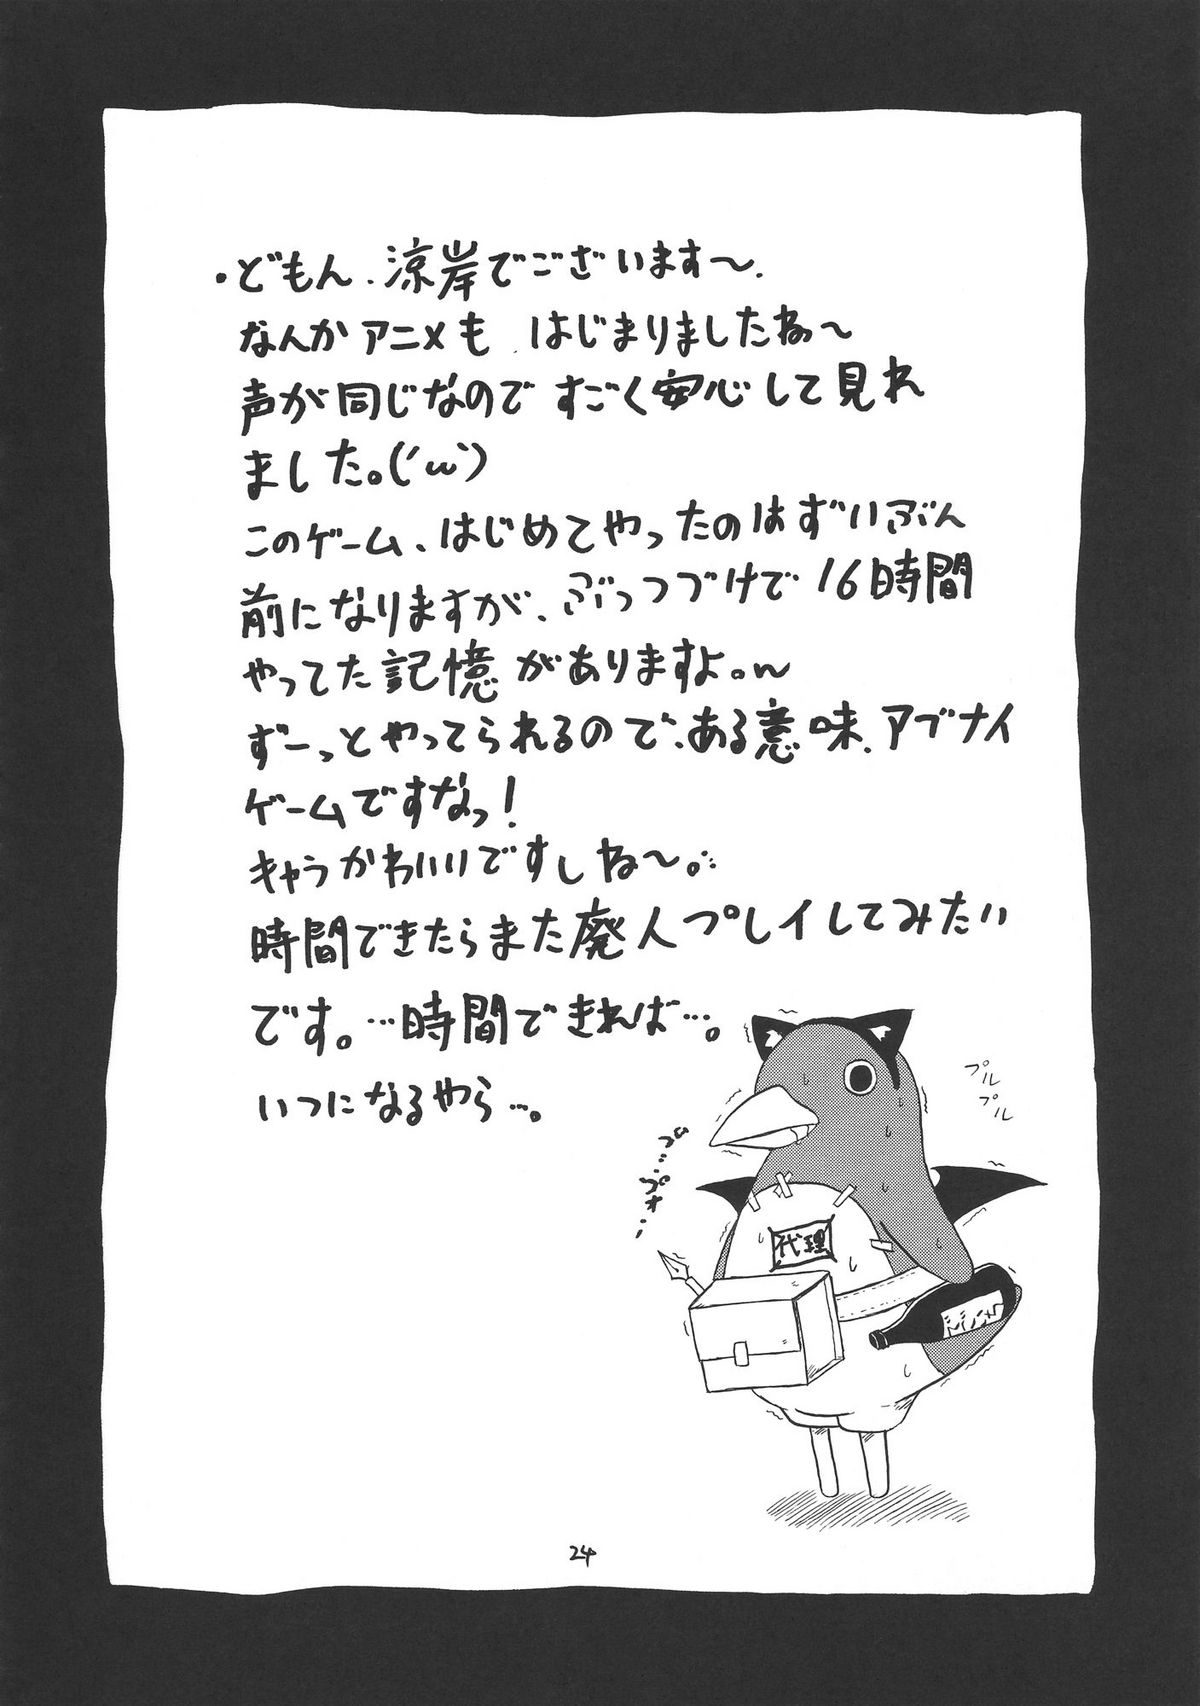 ・どもん、涼岸でございます〜.
なんかアニメも はじまりましたね〜
声が同じなので すごく安心して見れ
ました。(´ω`)
このゲーム、はじめてやったのはずいぶん
前になりますが、ぶっつづけで16時間
やってた記憶がありますよ。w
ずーっとやってられるので、ある意味、アブナイ
ゲームですなっ!
キャラかわいいですしね〜。
時間できたらまた廃人プレイしてみたい
です。…時間できれば…。
いつになるやら…。
プル
プル
代理
24